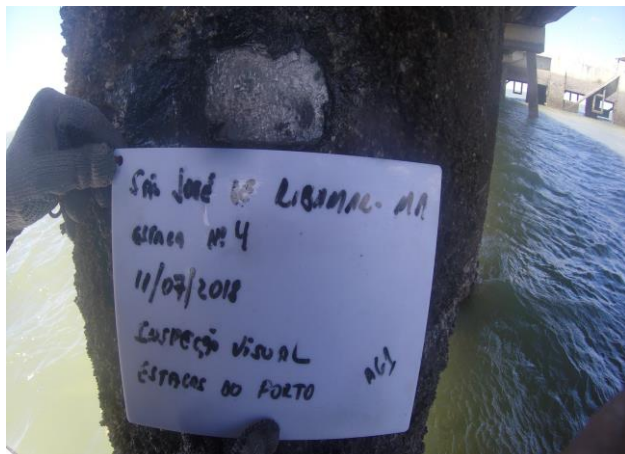 São José de RIBAMAR-MA
ESTACA Nº 4
11/07/2018
INSPEÇÃO VISUAL
ESTACAS DO PORTO